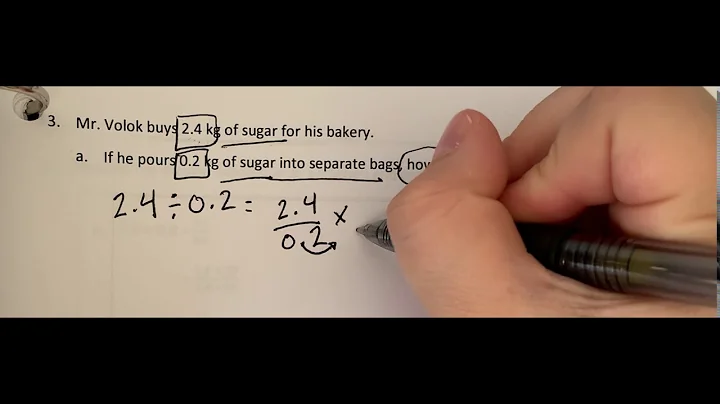 3. Mr. Volok buys 2.4 kg of sugar for his bakery.
a. If he pours 0.2 kg of sugar into separate bags, how
2.4 ÷ 0.2 = 2.4 ×
0.2